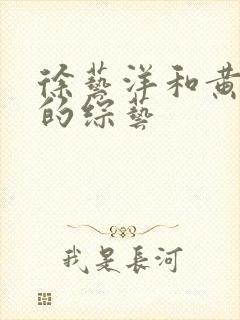 徐藝洋和黄
的综藝
我是長河